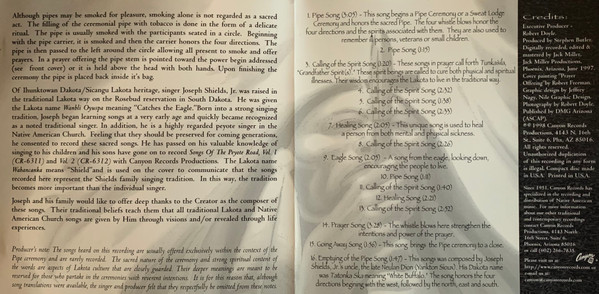 Although pipes may be smoked for pleasure, smoking alone is not regarded as a sacred
act. The filling of the ceremonial pipe with tobacco is done in the form of a delicate
ritual. The pipe is usually smoked with the participants seated in a circle. Beginning
with the pipe carrier, it is smoked and then the carrier honors the four directions. The
pipe is then passed to the left around the circle allowing all present to smoke and offer
prayers. In a prayer offering the pipe stem is pointed toward the power being addressed
(see front cover) or it is held above the head with both hands. Upon finishing the
ceremony the pipe is placed back inside it's bag.
Of Ihunktowan Dakota/Sicangu Lakota heritage, singer Joseph Shields, Jr. was raised in
the traditional Lakota way on the Rosebud reservation in South Dakota. He was given
the Lakota name Wambli Oyuspa meaning "Catches the Eagle." Born into a strong singing
tradition, Joseph began learning songs at a very early age and quickly became recognized
as a noted traditional singer. In addition, he is a highly regarded peyote singer in the
Native American Church. Feeling that they should be preserved for coming generations,
he consented to record these sacred songs. He has passed on his valuable knowledge of
singing to his children and his sons have gone on to record Songs Of The Peyote Road, Vol. 1
(CR-6311) and Vol. 2 (CR-6312) with Canyon Records Productions. The Lakota name
Wahacanka means "Shield" and is used on the cover to communicate that the songs
recorded here represent the Shields family singing tradition. In this way, the tradition
becomes more important than the individual singer.
Joseph and his family would like to offer deep thanks to the Creator as the composer of
these songs. Their traditional beliefs teach them that all traditional Lakota and Native
American Church songs are given by Him through visions and/or revealed through life
experiences.
Producer's note: The songs heard on this recording are usually offered exclusively within the context of the
Pipe ceremony and are rarely recorded. The sacred nature of the ceremony and strong spiritual content of
the words are aspects of Lakota culture that are dearly guarded. Their deeper meanings are meant to be
reserved for those who partake in the ceremonies with reverent intentions. It is for this reason that, although
song translations were available, the singer and producer felt that they respectfully be omitted from these notes.
1. Pipe Song (3:05) - This song begins a Pipe Ceremony or a Sweat Lodge
Ceremony and honors the sacred Pipe. The four whistle blows honor the
four directions and the spirits associated with them. They are also used to
remember persons, veterans or small children.
2. Pipe Song (1:15)
3. Calling of the Spirit Song (2:20) - These songs in prayer call forth Tunkasila,
"Grandfather Spirit(s)." These spirit beings are called to cure both physical and spiritual
illnesses. They also encourage the Lakota to live in the traditional way.
4. Calling of the Spirit Song (2:32)
5. Calling of the Spirit Song (2:38)
6. Calling of the Spirit Song (2:33)
7. Healing Song (2:09) - This unction song is used to heal
a person from both mental and physical sickness.
8. Calling of the Spirit Song (2:26)
9. Eagle Song (2:03) - A song from the eagle, looking down,
encouraging the people to live.
10. Pipe Song (3:11)
11. Calling of the Spirit Song (1:40)
12. Healing Song (2:21)
13. Calling of the Spirit Song (2:32)
14. Prayer Song (5:28) - The whistle blows here strengthen the
intentions and power of the prayer.
15. Going Away Song (1:36) - This song brings the Pipe ceremony to a close.
16. Emptying of the Pipe Song (1:47) - This songs was composed by Joseph
Shields, Jr.'s uncle, the late Neulan Dion (Yankton Sioux). His Dakota name
was Tatonka Ska meaning "White Buffalo." The song honors the four
directions beginning with the west, followed by the north, east and south.
Credits:
Executive Producer -
Robert Doyle.
Produced by Stephen Butler.
Digitally recorded, edited &
mastered by Jack Miller,
Jack Miller Productions,
Phoenix, Arizona, June 1997.
Cover painting "Prayer
Offering" by Robert Freeman.
Graphic design by Jeffery
Nagy, Nile Graphic Design.
Photography by Robert Doyle.
Published by DMG Arizona
(ASCAP)
©℗ 1998 Canyon Records
Productions, 4143 N. 16th
St., Suite 6, Phx, AZ 85016
All rights reserved.
Unauthorized duplication
of this recording in any form
is illegal. Compact disc made
in U.S.A. Printed in U.S.A.
Since 1951, Canyon Records has
specialized in the recording and
distribution of Native American
music. For more information
about our other traditional
and contemporary recordings
contact Canyon Records
Productions, 4143 North
16th Street, Suite 6,
Phoenix, Arizona 85016
or call (602) 266-7835.
Please visit us at:
Canyon